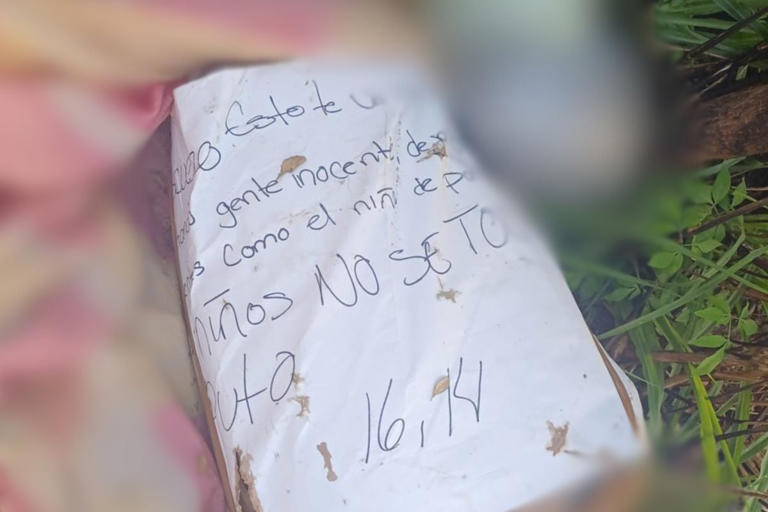 Esto te
gente inocent, de
como el niñ de P
niños NO SE TO
puta
16,14